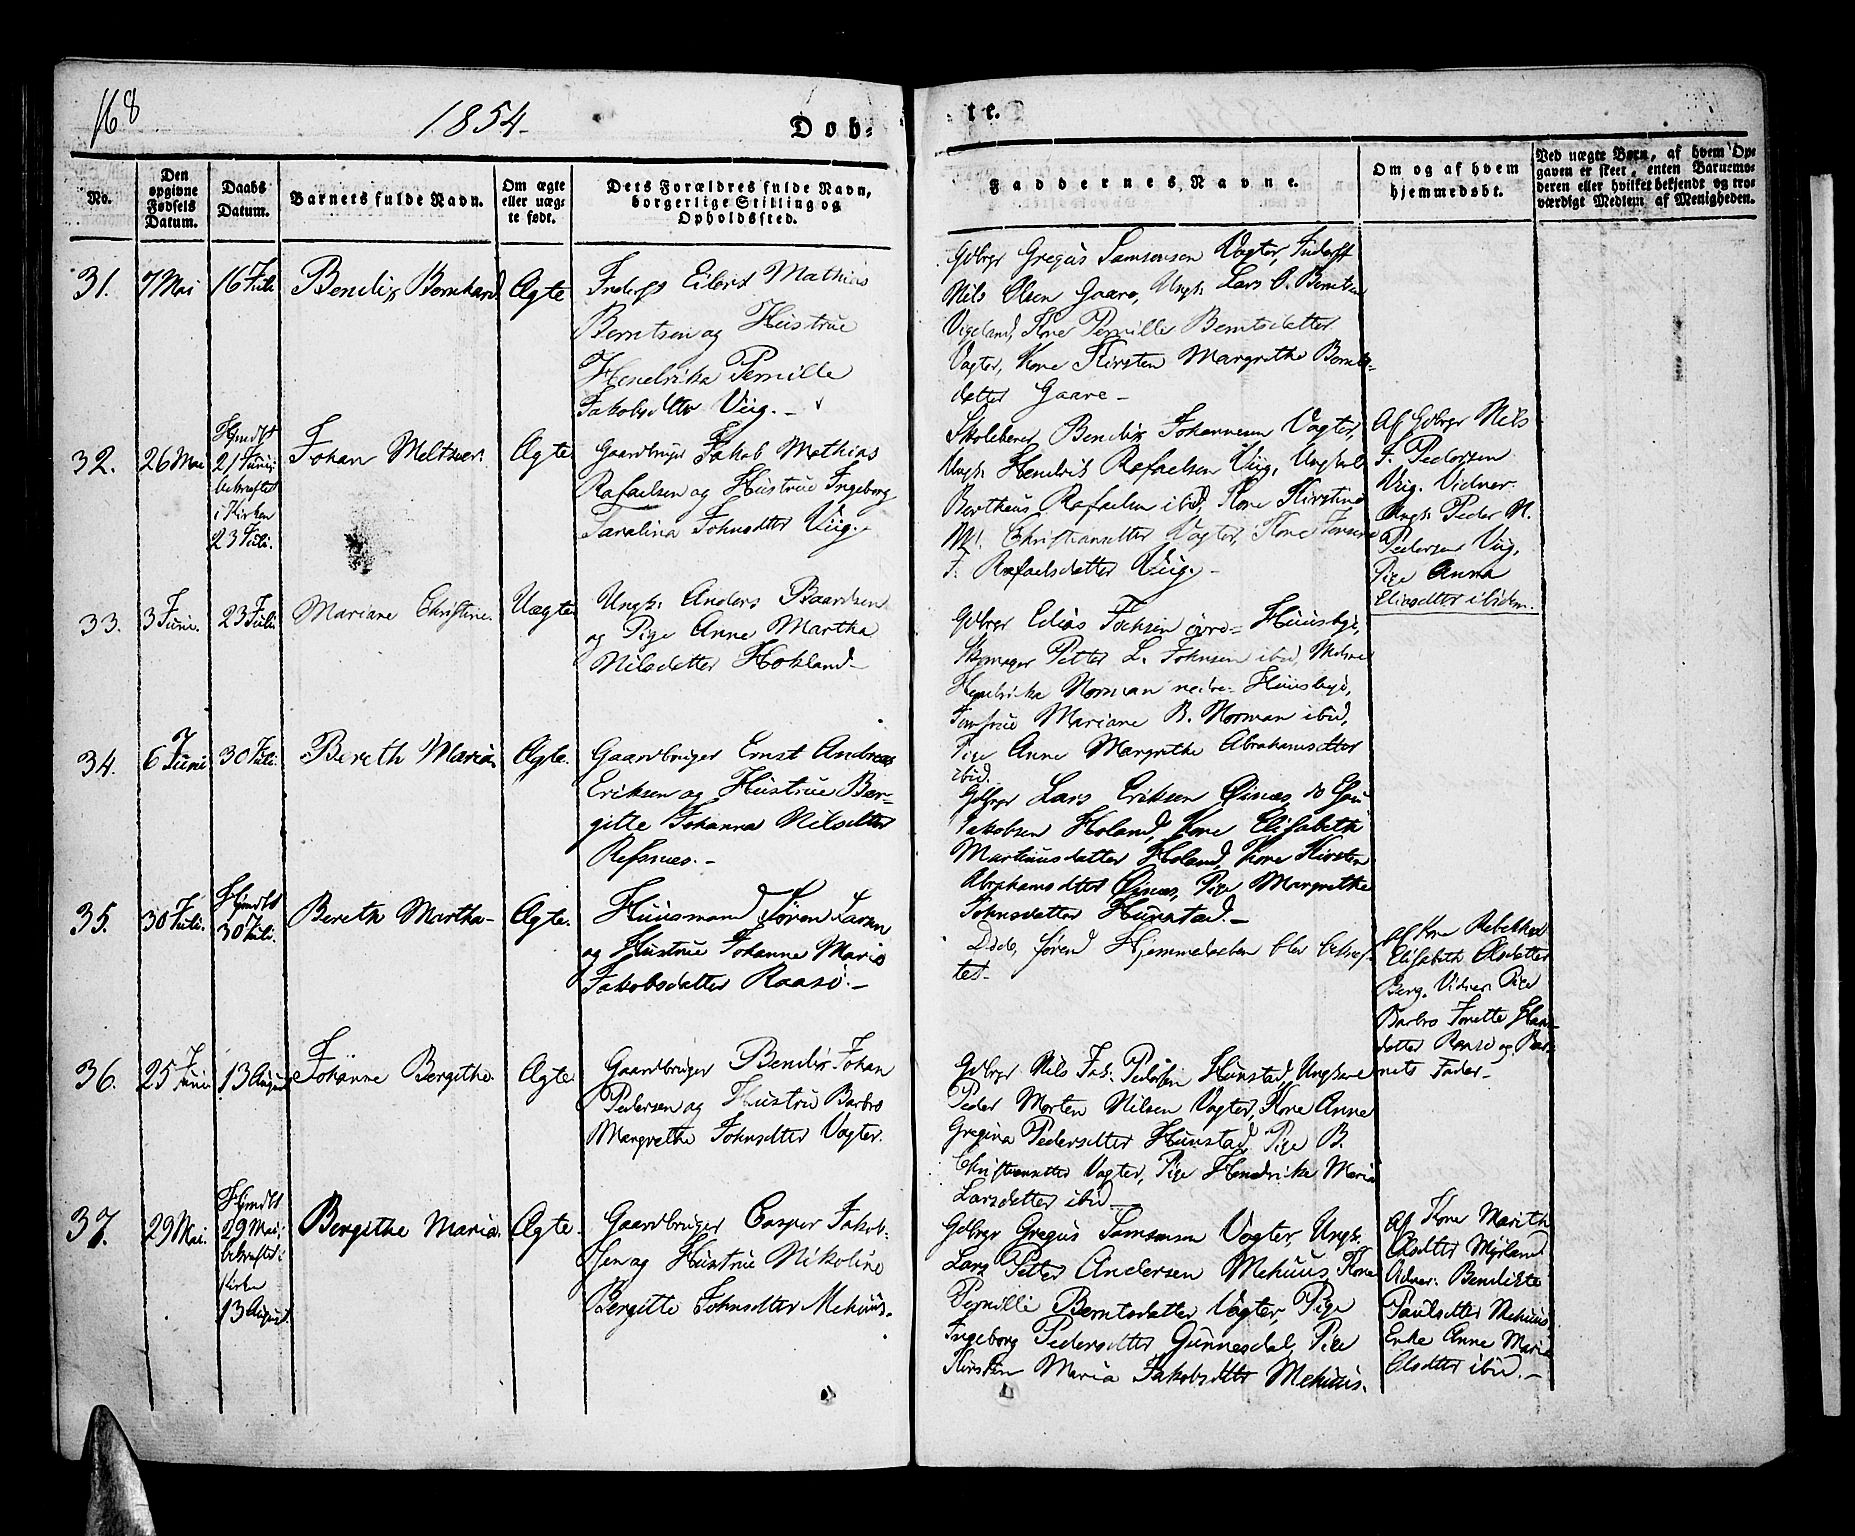 168
1854.
Døb-
te.
No.
Den opgivne Fødsels Datum.
Daabs Datum.
Barnets fulde Navn.
Om ægte eller uægte født.
Dets Forældres fulde Navn, borgerlige Stilling og Opholdssted.
Faddernes Navne.
Om og af hvem hjemmedøbt.
Ved uægte Børn, af hvem Opgaven er skeet, enten Barnemoderen eller hvilket bekjendt og troværdigt Medlem af Menigheden.
31.
7 Mai
16 Juli
Bendix Bernhard
Ægte
Inderst Eilert Mathias
Berntsen og Hustrue
Hendrika Pernille
Jakobsdtter Viig.
Gdbrgr Gregus Samsonsen Vagter, Inderst
Nils Olsen Gaare, Ungk. Lars O. Berntsen
Vigeland, Kone Pernille Berntsdatter
Vagter, Kone Kirsten Margrethe Bernts-
datter Gaare -
32.
26 Mai
Hjmdbt
21 Juni
bekræftet
i Kirken
23 Juli.
Johan Meltzer.
Ægte
Gaardbruger Jakob Mathias
Rafaelsen og Hustrue Ingeborg
Johnsdtter Viig.
Skolelærer Bendix Johannesen Vagter,
Ungk. Hendrik Rafaelsen Viig, Ungkarl
Bertheus Rafaelsen ibid, Kone Kirstine
M. Christiansdtter Vagter, Kone
J. Rafaelsdatter Viig.
Af Gdbrgr Nils
J. Pedersen
Viig. Vidner.
Ungk. Peder N.
Pedersen Viig,
Pige Anna
Eliasdtter ibidem.
33.
3 Juni.
23 Juli
Mariane Christine.
Uægte
Ungk. Anders Baardsen
og Pige Anne Martha
Nilsdatter Hokland
Gdbrgr Elias øvre Huusbye,
Skomager Petter L. Johnsen ibid, Madame
Hendrikke Norman nedre Huusbye,
Jomfrue Mariane B. Norman ibid,
Pige Anne Margrethe Abrahamsdtter
ibid.
34.
6 Juni
30 Juli.
Bereth Maria
Ægte.
Gaardbruger Ernst Andreas
Eriksen og Hustrue Ber-
gitte Johanna Nilsdtter
Refsnes.
Gdbrgr Lars Eriksen Øinæs, do
Jakobsen Holand, Kone Elisabeth
Martinusdatter Holand, Kone Kirsten
Abrahamsdtter Øinæs, Pige Margrethe
Johnsdatter Hunstad.
35.
30 Juli.
Hjmdbt
30 Juli.
Bereth Martha
Ægte.
Huusmand Søren Larsen
og Hustrue Johanne Maria
Jakobsdatter Raasø.
Døde, førend Hjemmedaaben blev bekræf-
tet.
Af Kone Rebekka
Elisabeth Olsdatter
Berg. Vidner: Pige
Barbro Jonette Hans-
datter Raasø og Bar-
nets Fader.
36.
25 Juni
13 August
Johanne Bergithe.
Ægte
Gaardbruger Bendix Johan
Pedersen og Hustrue Barbro
Margrethe Johnsdtter Vagter.
Gdbrgr Nils Jak. Pedersen Hunstad, Ungkarl
Peder Morten Nilsen Vagter, Kone Anne
Gregina Pedersdtter Hunstad, Pige B.
Christiansdtter Vagter, Pige Hendrikke Maria
Larsdatter ibid
37.
29 Mai.
Hjmdbt
29 Mai;
bekræftet i
Kirken
13 August.
Bergithe Maria.
Ægte
Gaardbruger Casper Jakob-
sen og Hustrue Nikoline
Bergitte Johnsdtter Mehuus.
Gdbrgr Gregus Samsonsen Vagter, Ungk.
Lars Petter Andersen Mehuus, Kone
Pernille Berntsdatter Vagter, Pige
Ingeborg Pedersdtter Gunnesdal, Pige
Kirsten Maria Jakobsdtter Mehuus.
Af Kone Marith
Olsdtter Myrland
Vidner: Benedikte
Paulsdtter Mehuus,
Enke Anne Maria
Olsdtter ibid.